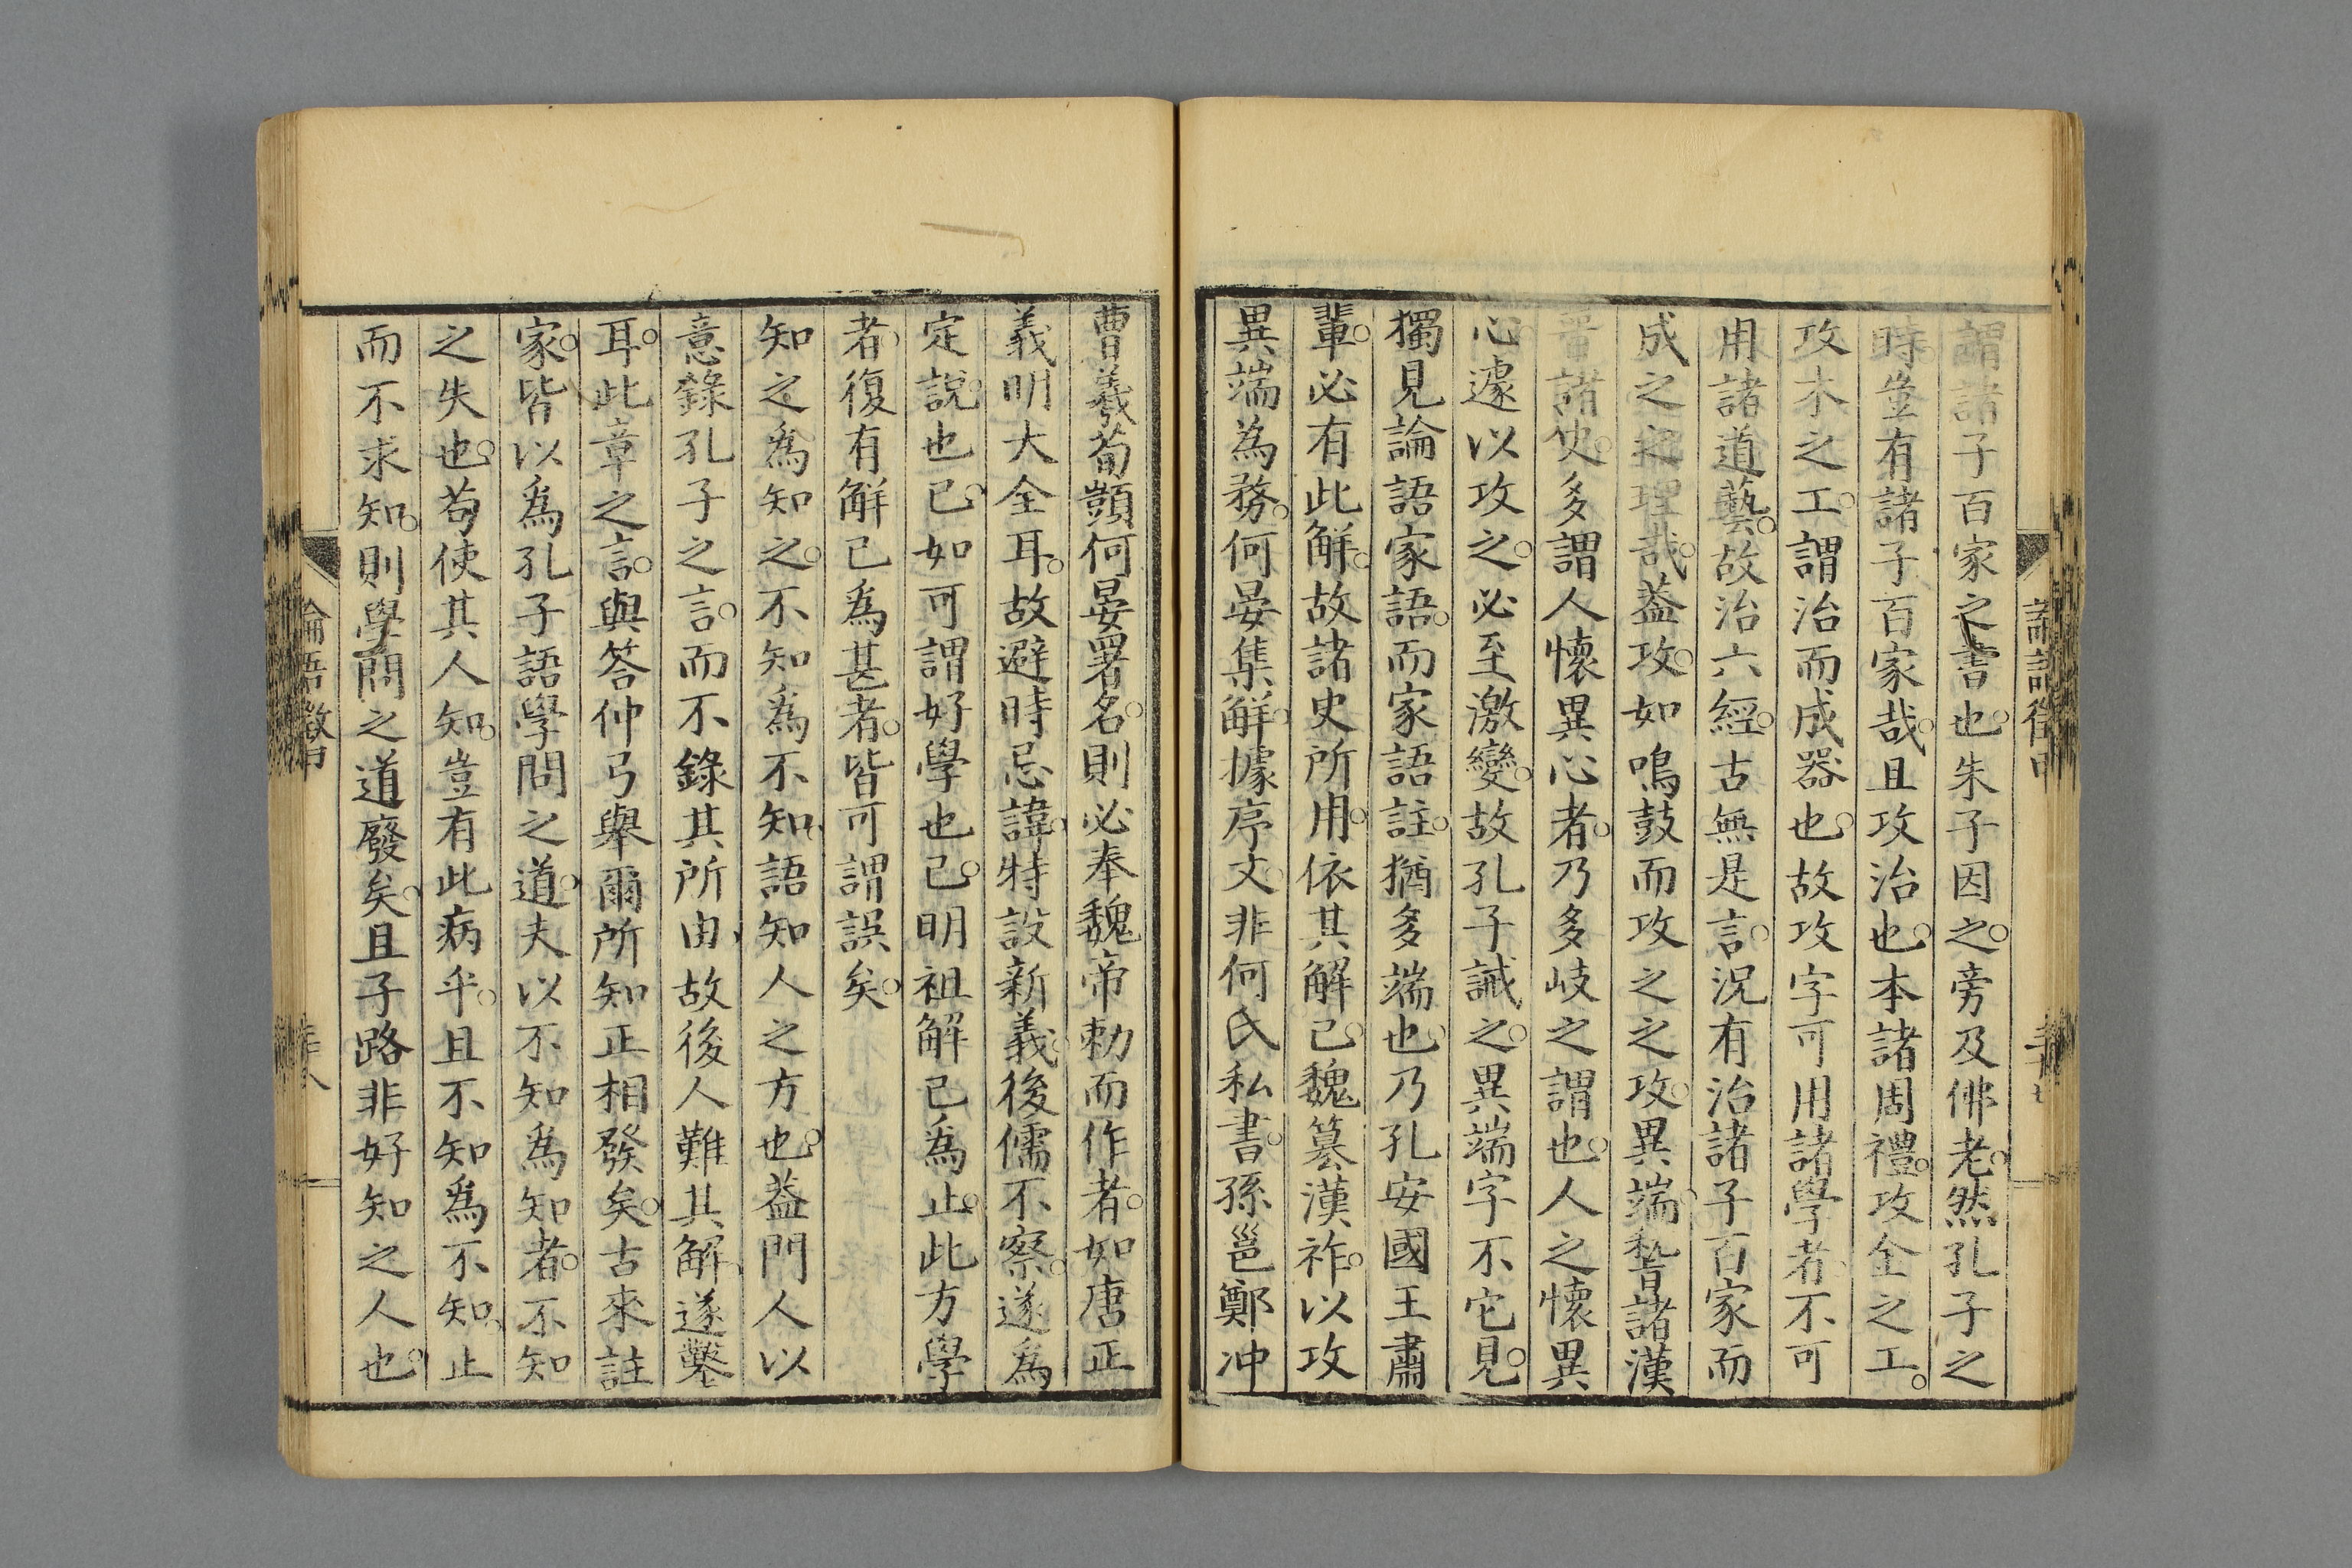 謂諸子百家之書也。朱子因之。旁及佛老。然孔子之
時豈有諸子百家哉。且攻治也。本諸周禮。攻金之工。
攻木之工。謂治而成器也。故攻字可用諸學者。不可
用諸道藝。故治六經。古無是言。況有治諸子百家而
成之之理哉。葢攻。如鳴鼓而攻之之攻。異端。稽諸漢
晉諸史。多謂人懷異心者。乃多岐之謂也。人之懷異
心。遽以攻之。必至激變。故孔子誡之。異端字不它見。
獨見論語家語。而家語註。猶多端也。乃孔安國王肅
輩。必有此解。故諸史所用。依其解已。魏篡漢祚。以攻
異端為務。何晏集解。據序文。非何氏私書。孫邕鄭冲
曹羲荀顗何晏署名。則必奉魏帝勅而作者。如唐正
義明大全耳。故避時忌諱。特設新義。後儒不察。遂爲
定說也。已。如可謂好學也已。明祖解已爲止。此方學
者。復有解已爲甚者。皆可謂誤矣。
知之爲知之。不知爲不知、語知人之方也。葢門人以
意錄孔子之言。而不錄其所由、故後人難其解、遂鑿
耳。此章之言。與答仲弓舉爾所知正相發矣。古來註
家。皆以爲孔子語學問之道。夫以不知爲知者。不知
之失也。苟使其人知。豈有此病乎。且不知爲不知、止
而不求知。則學問之道廢矣。且子路非好知之人也。
論語徵甲